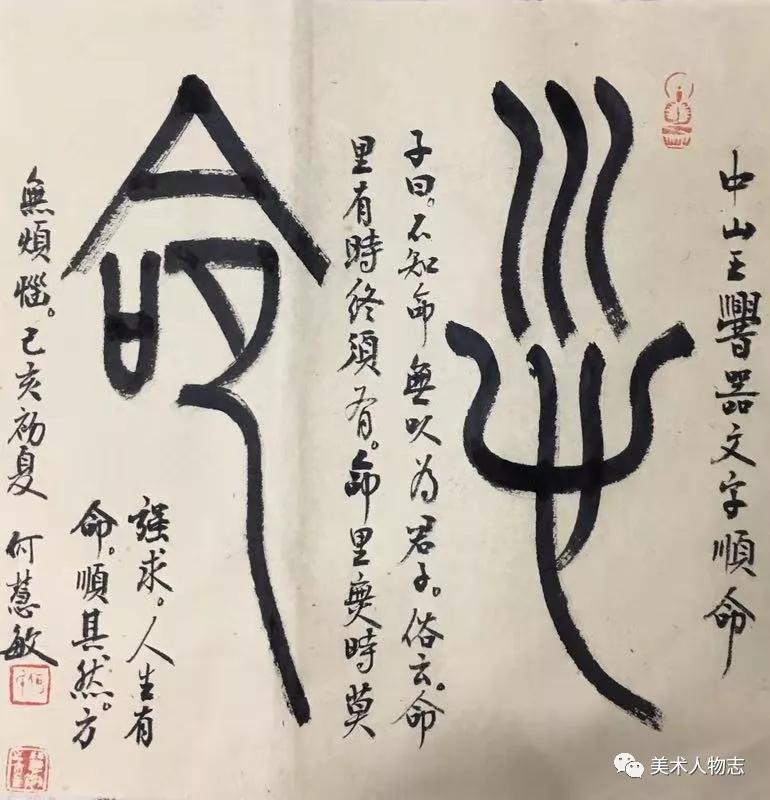 中山王器文字順命
順
子曰。不知命無以为君子。俗云。命
里有時終須有。命里無時莫
命
强求。人生有
命。順其然。方
無煩惱。己亥初夏 何慧敏
美术人物志